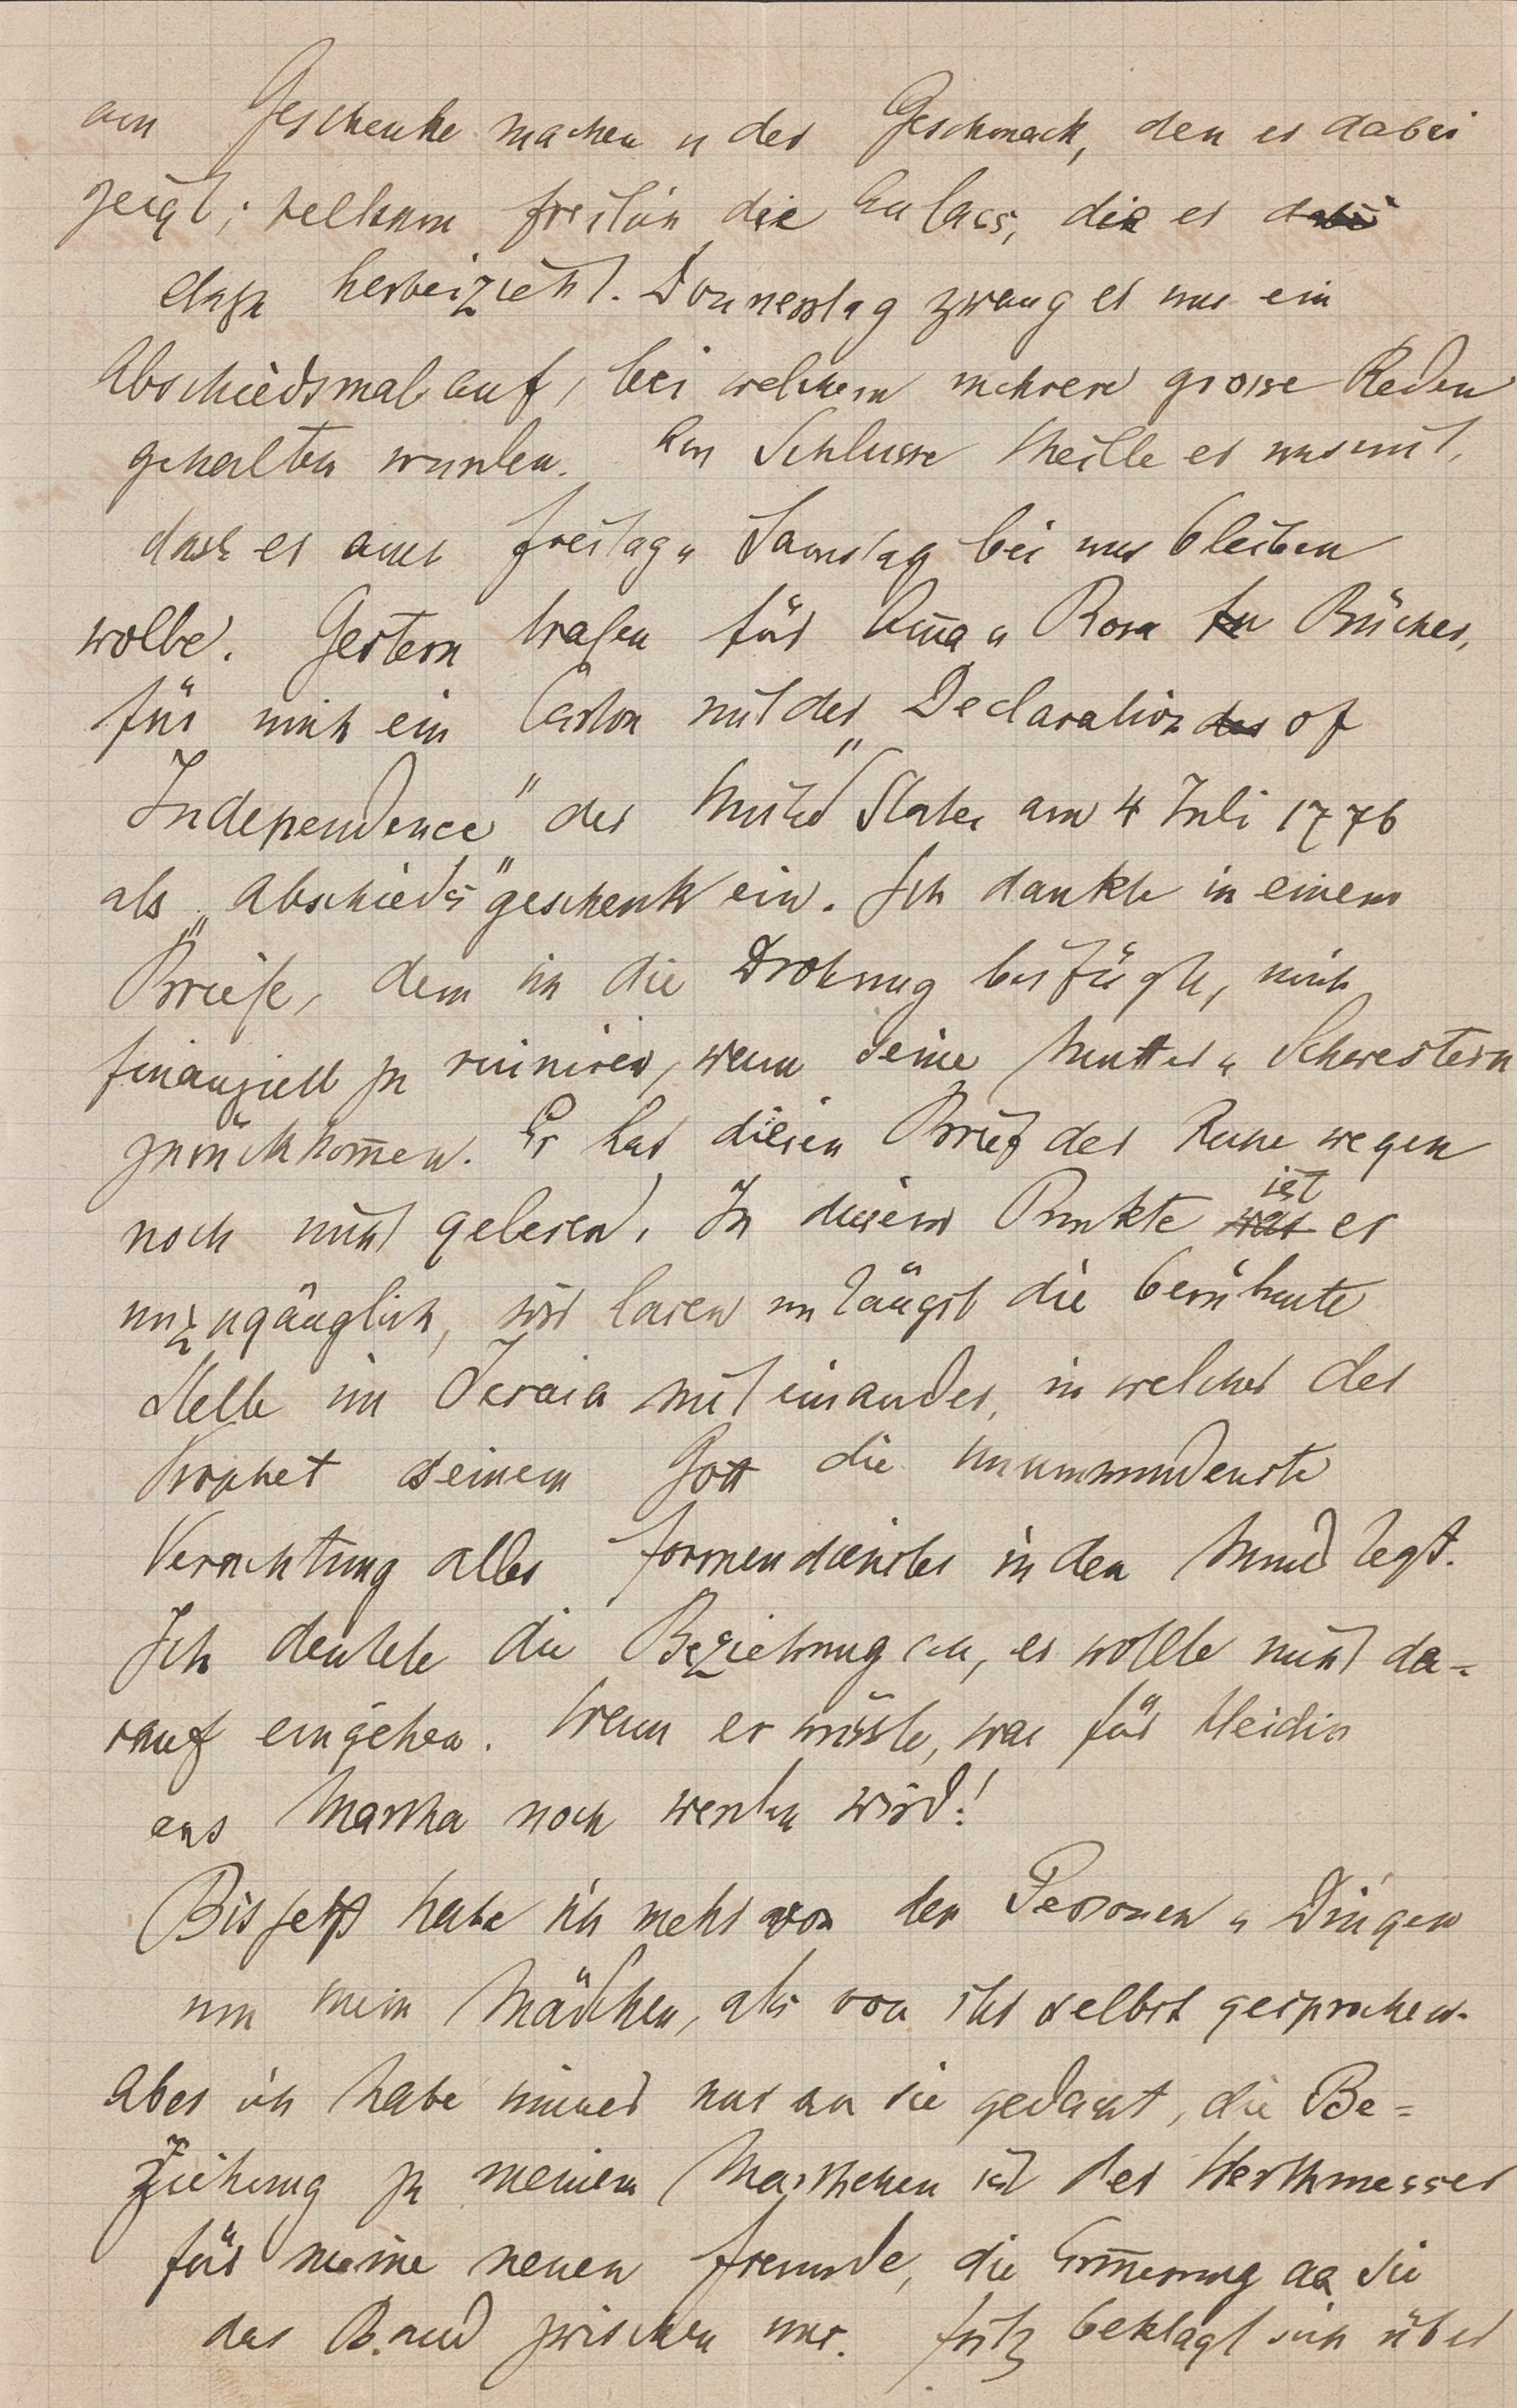 am Geschenke machen u der Geschmack, den er dabei
zeigt; seltsam freilich die Anlässe, die er dabei
dazu herbeizieht. Donnerstag zwang er uns ein
Abschiedsmal auf, bei welchem mehrere grosse Reden
gehalten wurden. Am Schlusse theilte er uns mit,
dass er auch Freitag u Samstag bei uns bleiben
wolle. Gestern trafen für Anna u Rosa Bücher,
für mich ein Carton mit der „Declaration des of
Independence" der United States am 4 Juli 1776
als „Abschieds"geschenk ein. Ich dankte in einem
Briefe, dem ich die Drohung beifügte, mich
finanziell zu ruiniren, wenn seine Mutter u Schwestern
zurückkom̅en. Er hat diesen Brief der Ruhe wegen
noch nicht gelesen. In diesem Punkte war ist er
unzugänglich, wir lasen unlängst die berühmte
Stelle im Jesaia mit einander, in welcher der
Prophet seinem Gott die unumwundenste
Verachtung alles Formendienstes in den Mund legt.
Ich deutete die Beziehung an, er wollte nicht da=
rauf eingehen. Wenn er wüsste, was für Heidin
aus Martha noch werden wird!
Bis jetzt habe ich mehr von den Personen u Dingen
um mein Mädchen, als von ihr selbst gesprochen.
Aber ich habe immer nur an sie gedacht, die Be=
ziehung zu meinem Marthchen ist der Werthmesser
für meine neuen Freunde, die Erin̅erung an sie
das Band zwischen uns. Fritz beklagt sich über